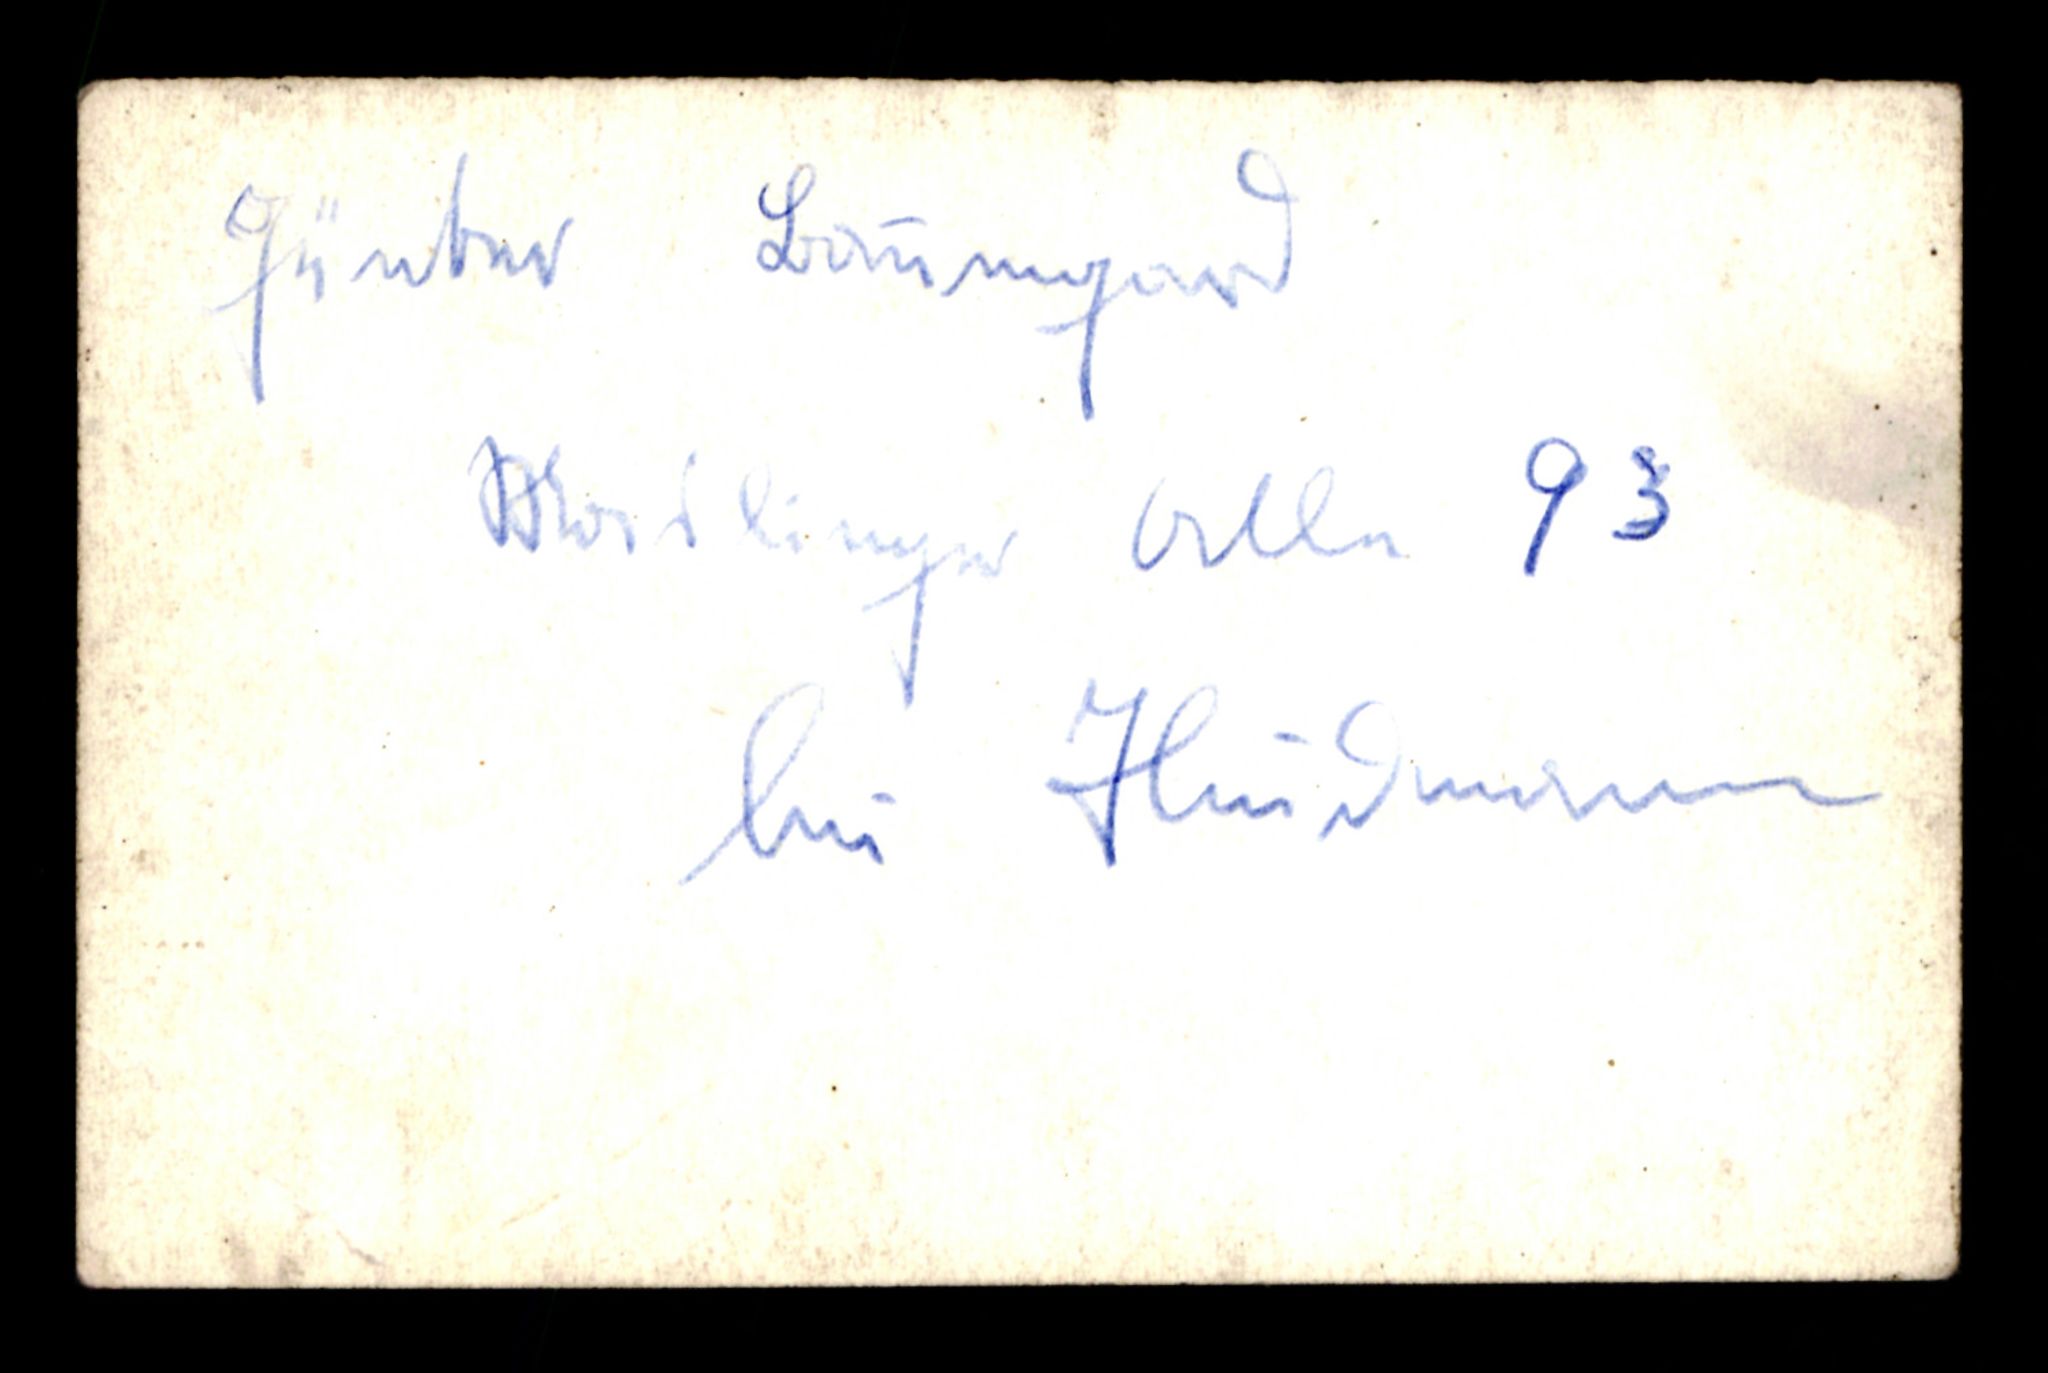 Günter Baumgard
Waidlinger Alle 93
bei Hudmann